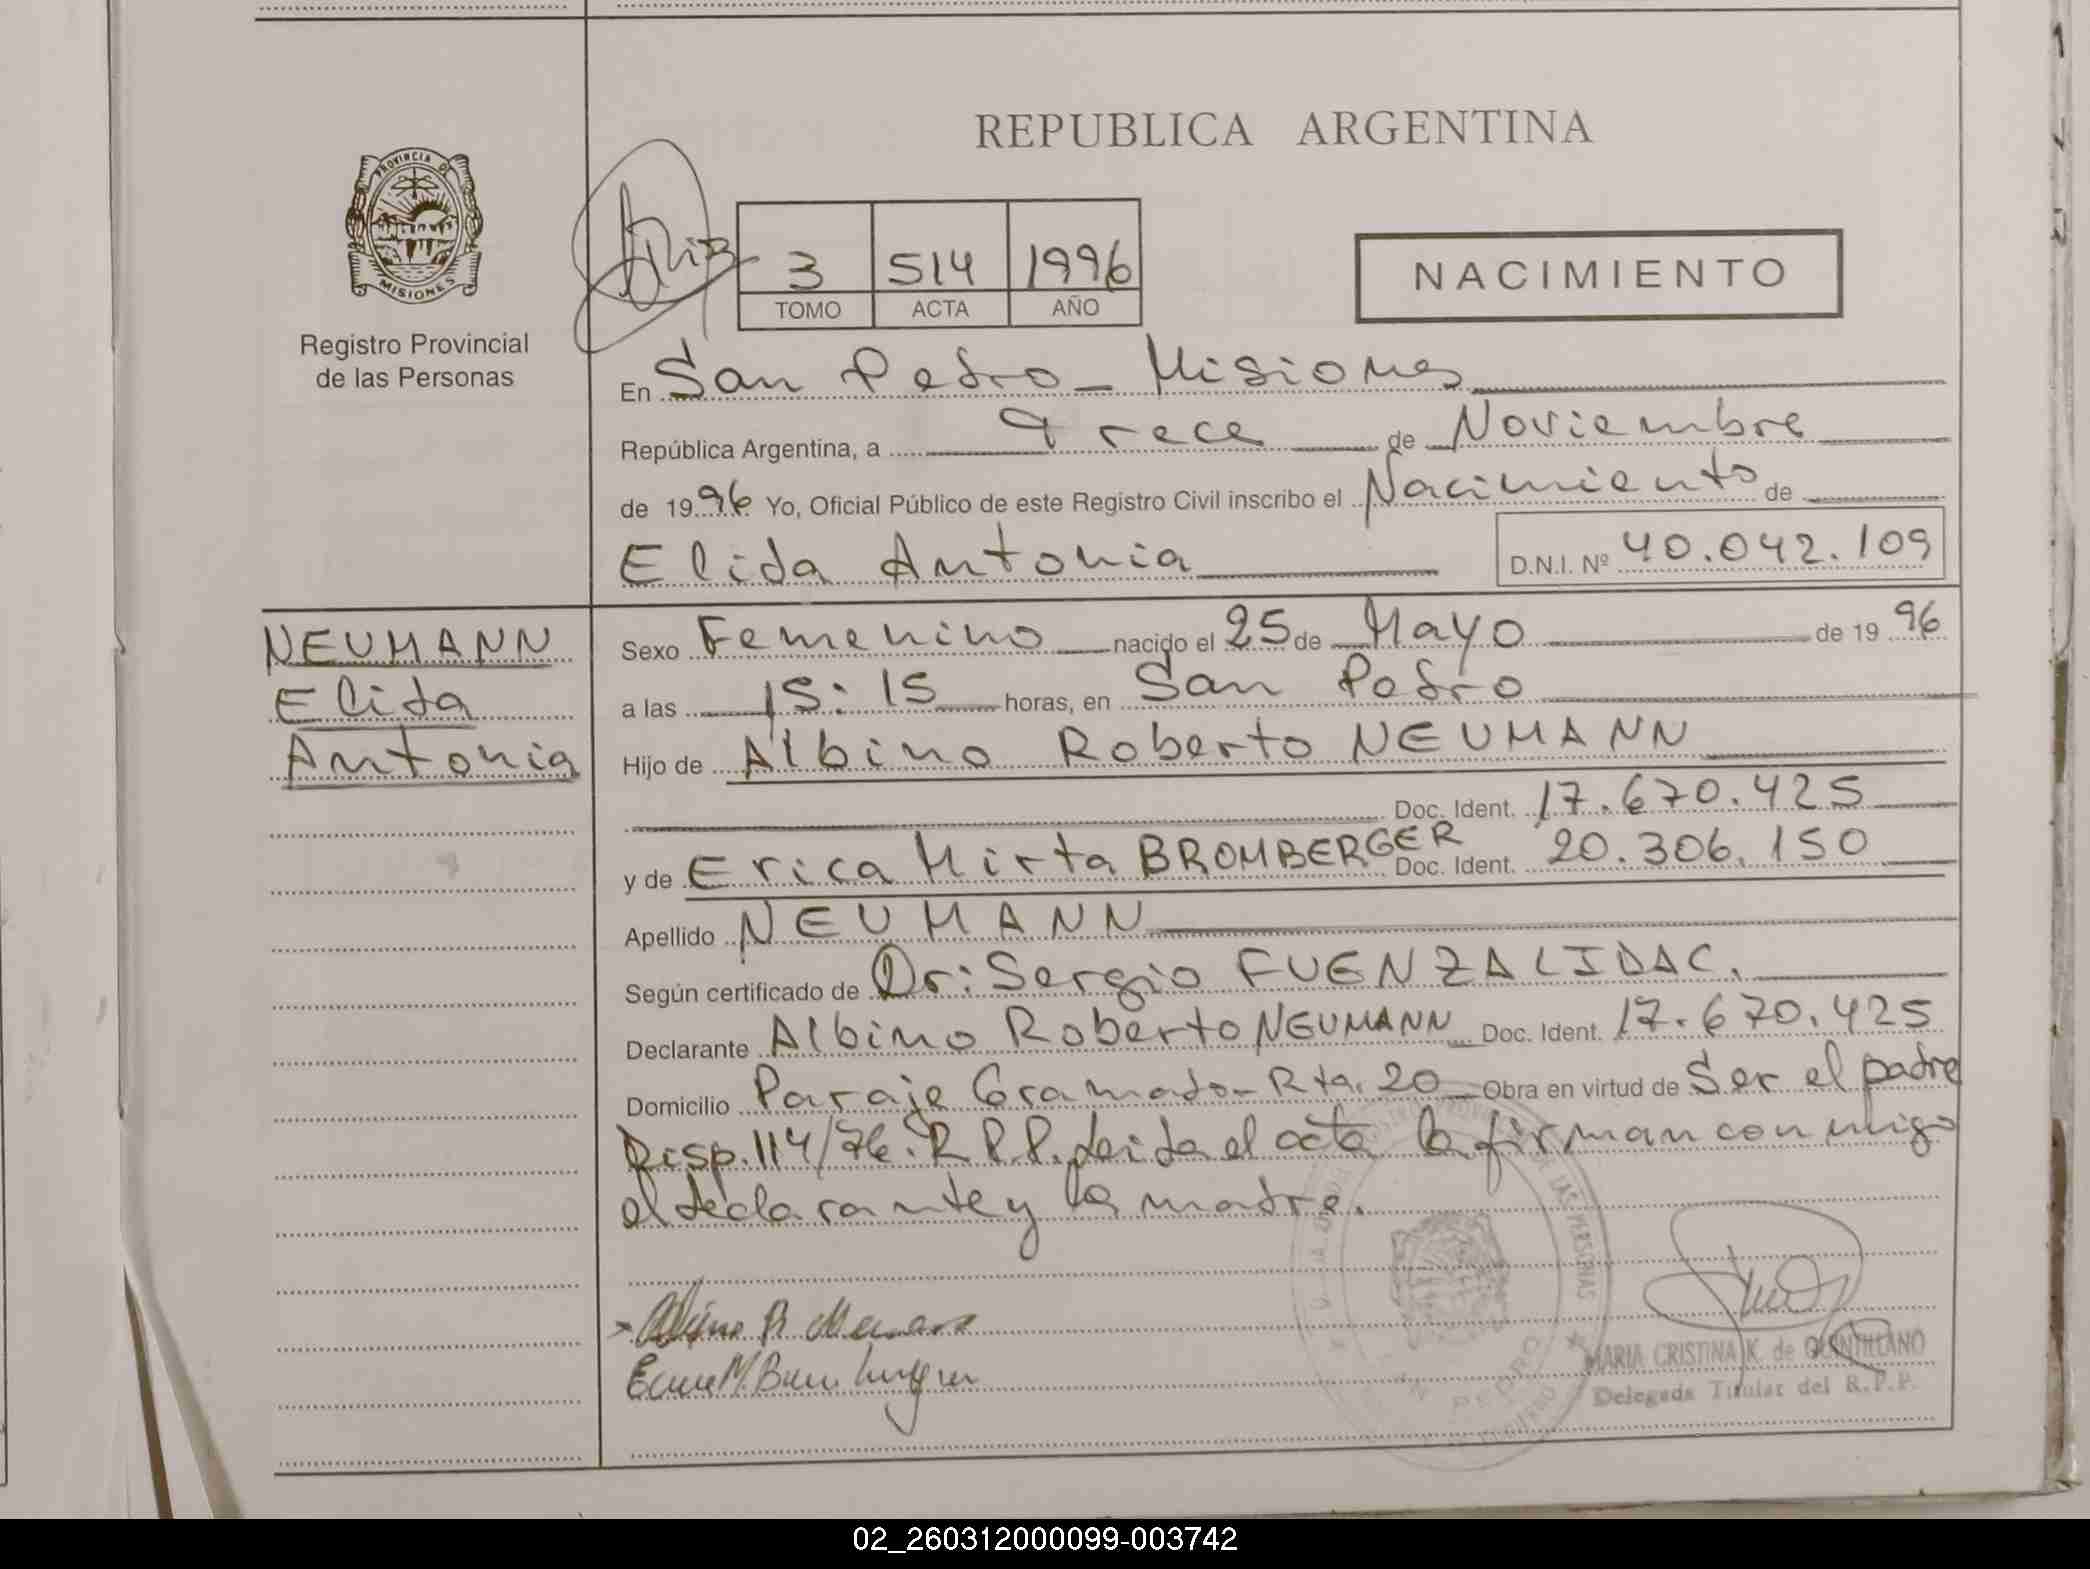 REPUBLICA ARGENTINA
PROVINCIA DE
MISIONES
Registro Provincial
de las Personas
3 514 1996
TOMO ACTA AÑO
NACIMIENTO
En San Pedro - Misiones
República Argentina, a Trece de Noviembre
de 1996 Yo, Oficial Público de este Registro Civil inscribo el Nacimiento de
Elida Antonia D.N.I. Nº 40.042.109
NEUMANN
Elida
Antonia
Sexo Femenino nacido el 25 de Mayo de 1996
a las 15:15 horas, en San Pedro
Hijo de Albino Roberto NEUMANN
Doc. Ident. 17.670.425
y de Erica Mirta BROMBERGER Doc. Ident. 20.306.150
Apellido NEUMANN
Según certificado de Dr: Sergio FUENZALIDA C.
Declarante Albino Roberto NEUMANN Doc. Ident. 17.670.425
Domicilio Paraje Gramado - Rta. 20 Obra en virtud de Ser el padre
Disp. 114/76. R.P.P. Leida el acta la firman conmigo
el declarante y la madre.
DE LAS PERSONAS
PEDRO
MARIA CRISTINA K. de QUINTILLANO
Delegada Titular del R.P.P.
02_260312000099-003742